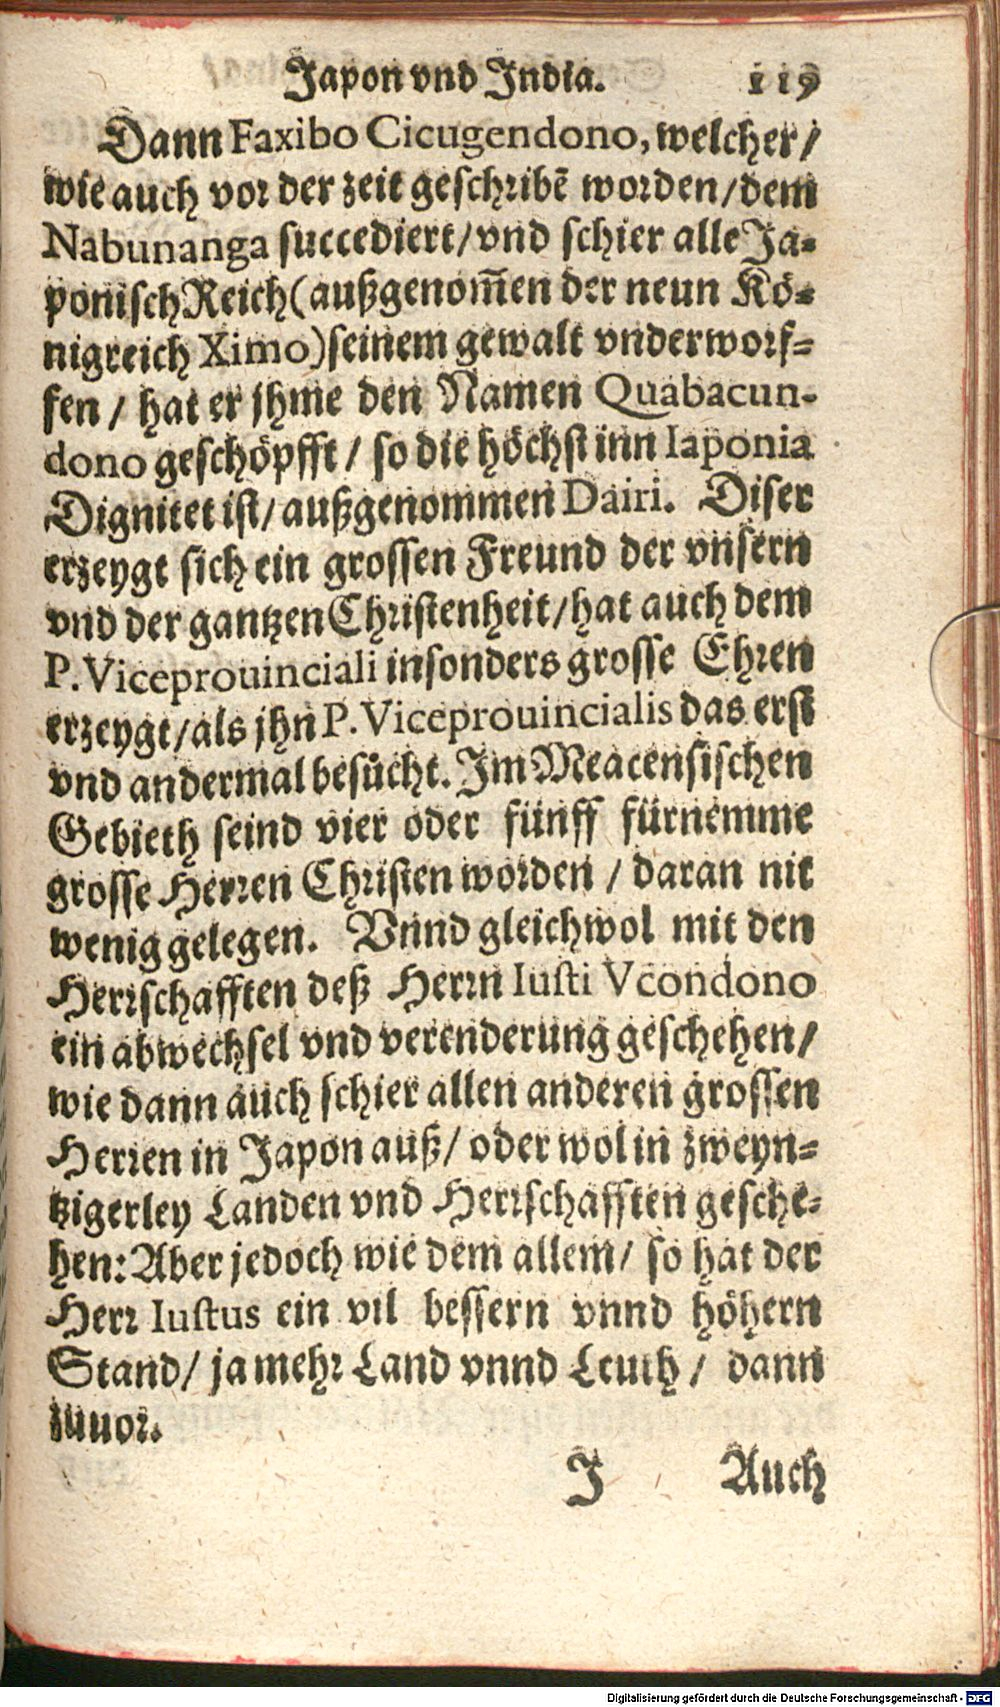 Japon vnd India. 119
Dann Faxibo Cicugendono, welcher/
wie auch vor der zeit geschribē worden/dem
Nabunanga succediert/vnd schier alle Ja-
ponisch Reich (außgenom̄en der neun Kö-
nigreich Ximo) seinem gewalt vnderworf-
fen / hat er jhme den Namen Quabacun-
dono geschöpfft / so die höchst inn Iaponia
Dignitet ist/ außgenommen Dairi. Diser
erzeygt sich ein grossen Freund der vnsern
vnd der gantzen Christenheit/hat auch dem
P. Viceprouinciali insonders grosse Ehren
erzeygt/als jhn P. Viceprouincialis das erst
vnd andermal besůcht. Im Meacensischen
Gebieth seind vier oder fünff fürnemme
grosse Herren Christen worden / daran nit
wenig gelegen. Vnnd gleichwol mit den
Herrschafften deß Herrn Iusti Vcondono
ein abwechsel vnd verenderung geschehen/
wie dann auch schier allen anderen grossen
Herren in Japon auß/ oder wol in zweyn-
tzigerley Landen vnd Herrschafften gesche-
hen: Aber jedoch wie dem allem/ so hat der
Herr Iustus ein vil bessern vnnd höhern
Stand/ ja mehr Land vnnd Leuth / dann
zuuor.
J Auch
Digitalisierung gefördert durch die Deutsche Forschungsgemeinschaft - DFG